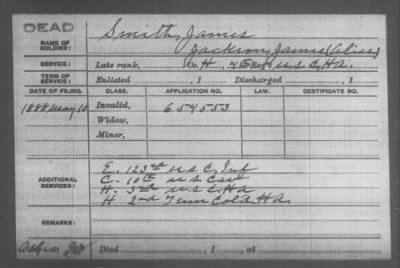 DEAD
NAME OF SOLDIER: Smith, James
Jackson, James (Alias)
SERVICE: Late rank, Co. H, 45 Reg't U S C, H A.
TERM OF SERVICE: Enlisted , 1 Discharged , 1
DATE OF FILING. CLASS. APPLICATION NO. LAW. CERTIFICATE NO.
1888 May 10 Invalid, 654553
Widow,
Minor,
E. 123rd U S C. Inf
ADDITIONAL SERVICES: C. 10th U S Cav
H. 3rd U S C. H A
H. 2nd Tenn Cold H A.
REMARKS:
Died , 1 , at